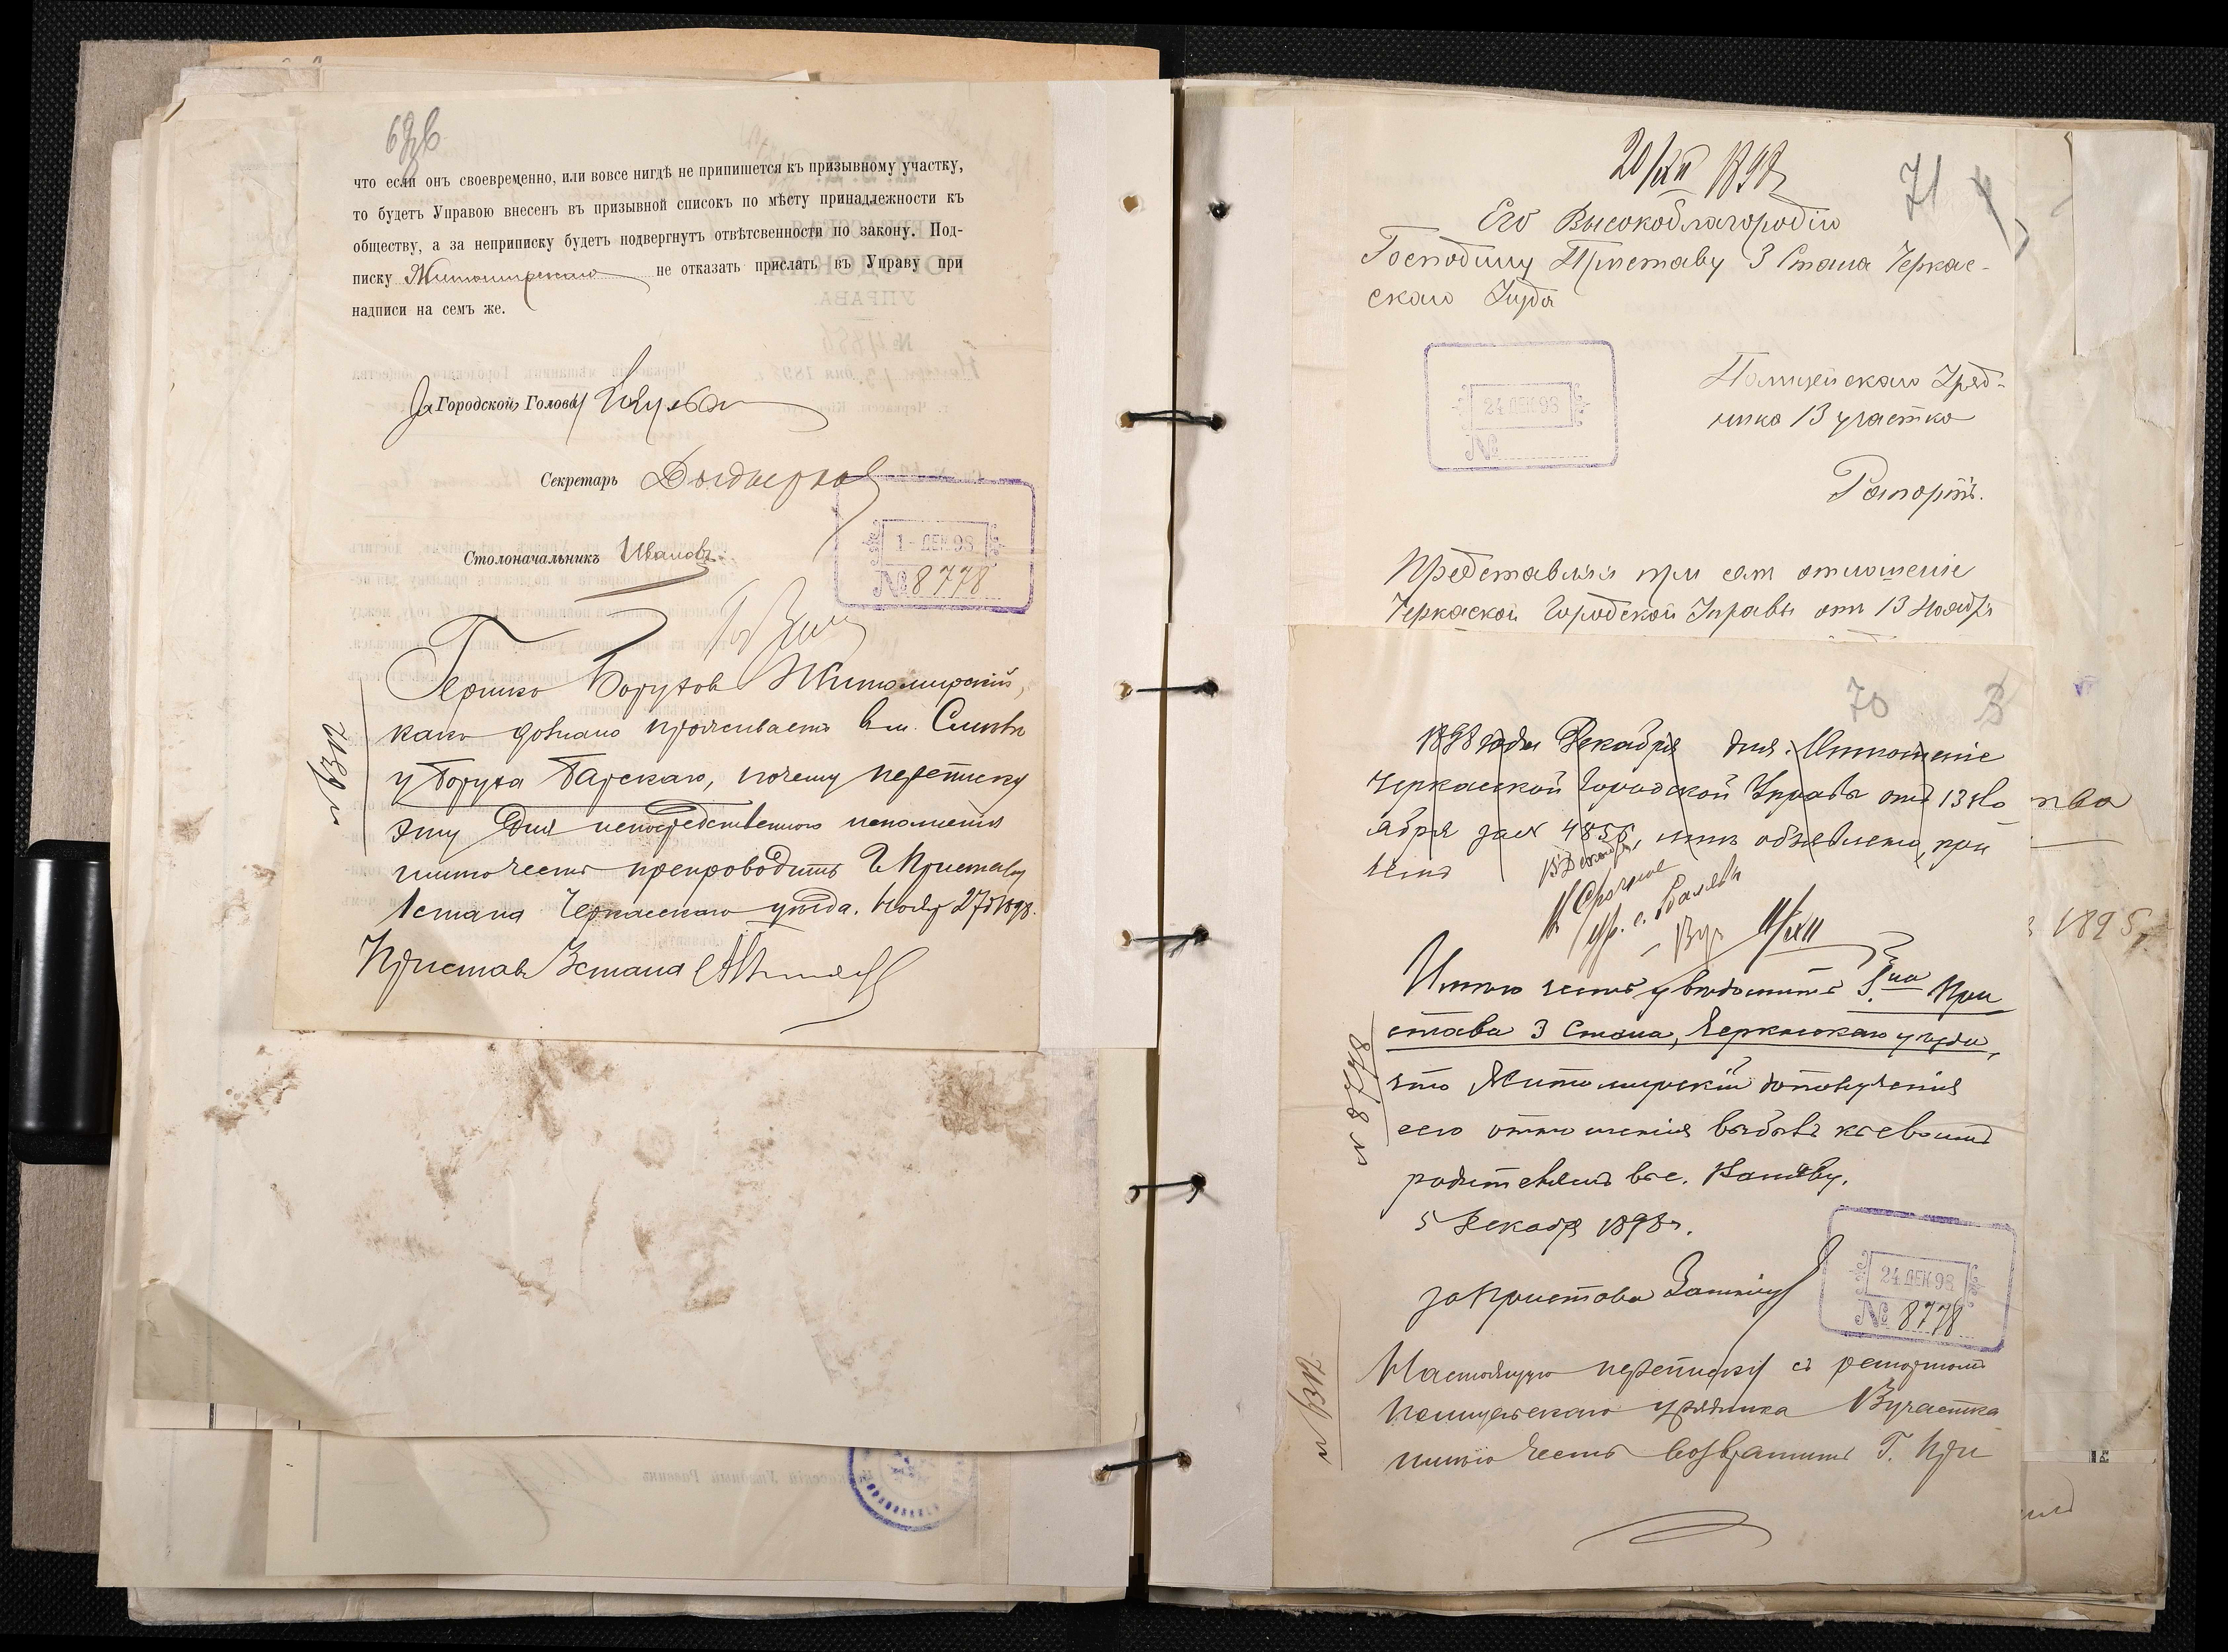 что если онъ своевременно, или вовсе нигдѣ не припишется къ призывному участку,
то будетъ Управою внесенъ въ призывной списокъ по мѣсту принадлежности къ
обществу, а за неприписку будетъ подвергнутъ отвѣтсвенности по закону. Под-
писку Житомирскаго не отказать прислать въ Управу при
надписи на семъ же.
За Городской Голова
Секретарь
Столоначальникъ Ивановъ
1 - ДЕК 98
№ 8778
Гершко Борухов Житомирскій,
како дознано проживаетъ в м. Смила
у Боруха Барскаго, почему переписку
эту для непосредственного исполненія
имѣю честь препроводить Г. Приставу
1 стана Черкасскаго уѣзда. Нояб 27 д 1898.
Пристав 3 стана
20/XII 1898
71
Его Высокоблагородію
Господину Приставу 3 Стана Черкас-
скаго Уѣзда
24 ДЕК 98
№
Полицейскаго Уряд-
ника 13 участка
Рапортъ.
Представляя при сем отношеніе
Черкаской Городской Управы от 13 Ноябр
70
1898 года Декабря дня. Отношеніе
Черкасской Городской Управы отъ 13 Но
ября за № 4856, мнѣ объявлено, при
чемъ
15 Декабря
Срочное
Ур. с.
11/XII
Имѣю честь увѣдомить Г.на При
става 3 Стана, Черкасскаго уѣзда,
что Житомирскій до полученія
сего отношенія выбылъ къ своимъ
родителямъ в с.
5 Декабря 1898 г.
№ 8778
за Пристава
24 ДЕК 98
№ 8778
Настоящую переписку съ рапортомъ
полицейскаго урядника 13 участка
имѣю честь возвратить Г. При
1895